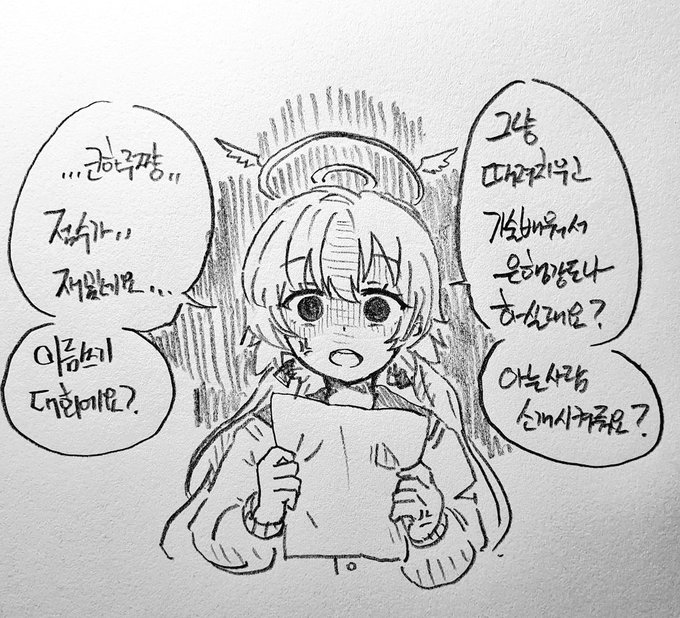 ...코하루쨩..
점수가..
재밌네요...
이름쓰기
대회에요?
그냥
때려치우고
기술배워서
은행강도나
하실래요?
아는사람
소개시켜줘요?